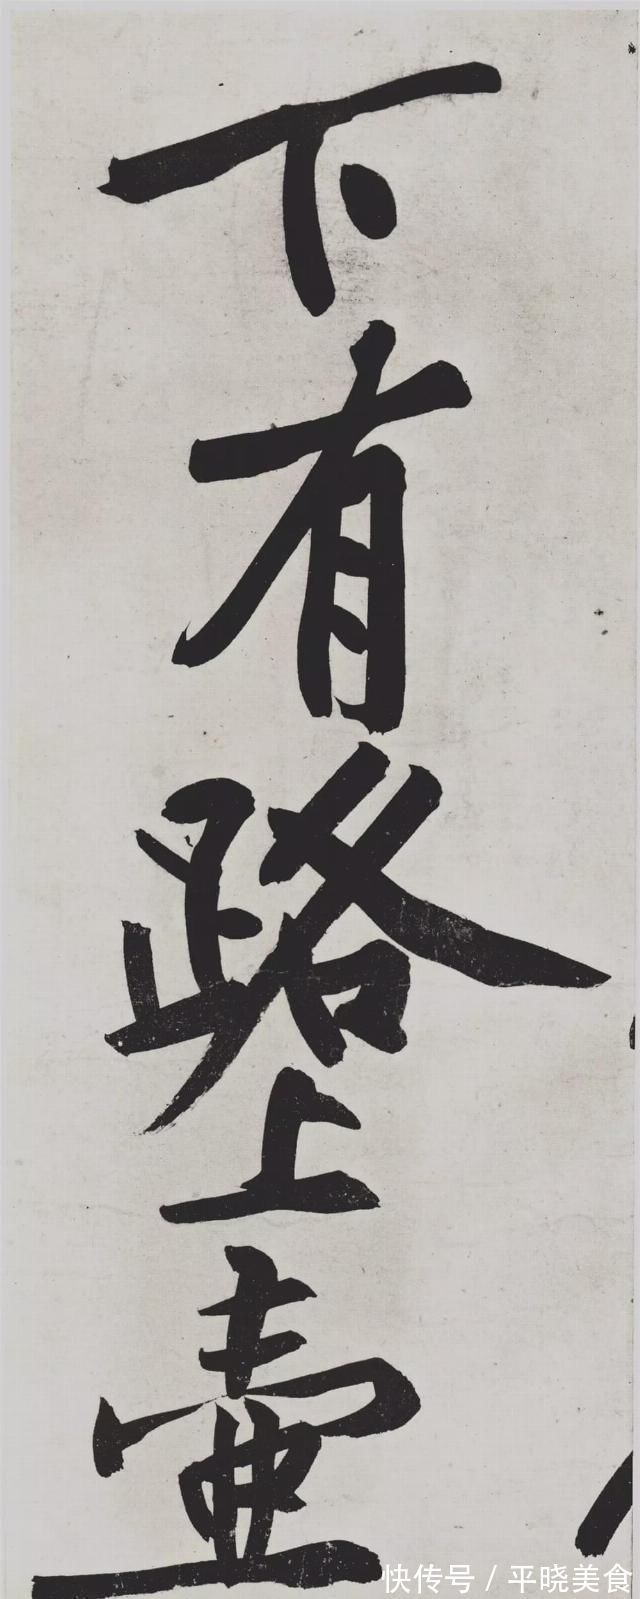 下有路上壶
快传号 / 平晓美食